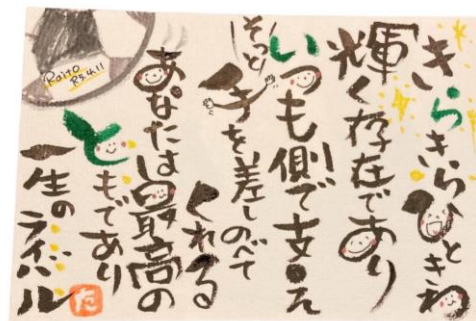 きらきらひときわ
輝く存在であり
いつも側で支え
そっと手を差しのべて
くれる
あなたは最高の
ともであり
一生のライバル
た
Raito